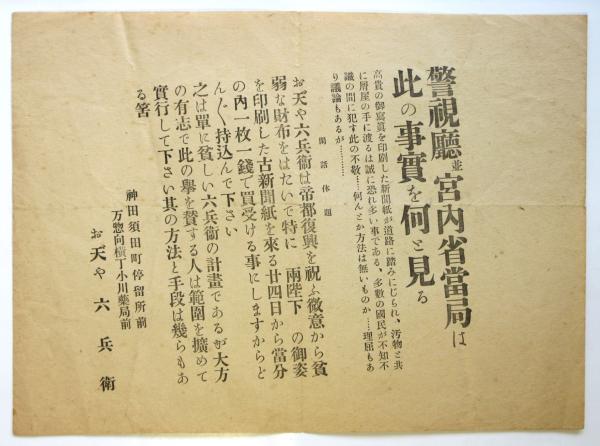 警視廳並宮內省當局は
此の事實を何と見る
高貴の御寫眞を印刷した新聞紙が道路に踏みにじられ、汚物と共
に屑屋の手に渡るは誠に恐れ多い事である、多數の國民が不知不
識の間に犯す此の不敬……何んとか方法は無いものか……理屈もあ
り議論もあるが…………
閑話休題
お天や六兵衞は帝都復興を祝ふ微意から貧
弱な財布をはたいで特に　兩陛下　の御姿
を印刷した古新聞紙を來る廿四日から當分
の內一枚一錢で買受ける事にしますからど
ん〲持込んで下さい
之は單に貧しい六兵衞の計畫であるが大方
の有志で此の擧を賛する人は範圍を擴めて
實行して下さい其の方法と手段は幾らもあ
る筈
神田須田町停留所前
万惣向橫丁小川藥局前
お天や六兵衞